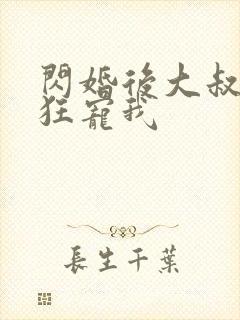 閃婚後大叔
狂寵我
長生千葉